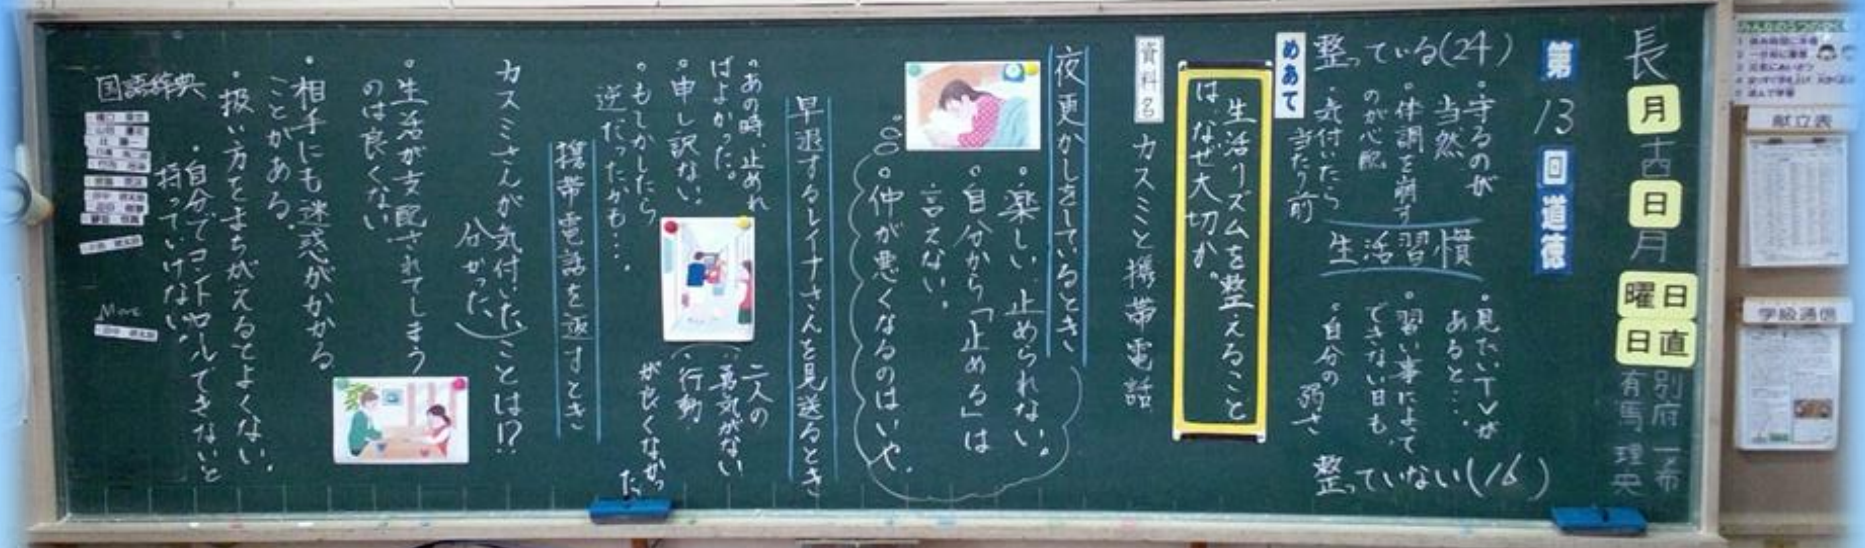 長
月
十四
日
月
曜日
日直
別府 一希
有馬 理央
第13回道徳
整っている(24)
・守るのが
当然
・体調を崩す
のが心配
・気付いたら
当たり前
生活習慣
・見たいTVが
あると・・・
・習い事によって
できない日も、
・自分の弱さ
整っていない(16)
めあて
生活リズムを整えること
はなぜ大切か。
資料名
カスミと携帯電話
夜更かしをしているとき
・楽しい、止められない。
・自分から「止める」は
言えない。
・仲が悪くなるのはいや。
早退するレイナさんを見送るとき
・あの時、止めれ
ばよかった。
・申し訳ない。
・もしかしたら
逆だったかも・・・。
二人の
勇気がない
行動
が良くなかっ
た
携帯電話を返すとき
カスミさんが気付いたことは!?
分かった
・生活が支配されてしまう
のは良くない
・相手にも迷惑がかかる
ことがある。
・扱い方をまちがえるとよくない。
・自分でコントロールできないと
持っていけない
国語辞典
More
みんなの5つのやくそく
献立表
学級通信